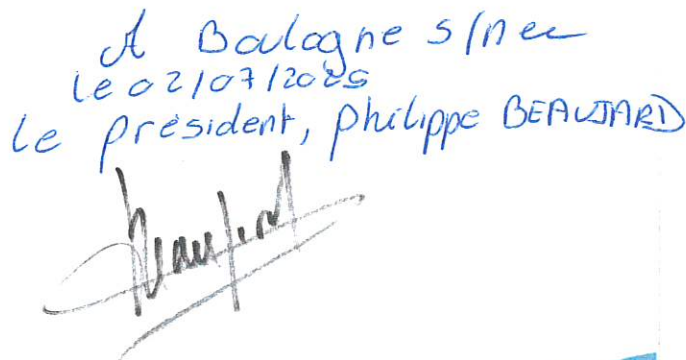 A Boulogne s/mer
le 02/07/2025
le président, philippe BEAUJARD
Beaujard